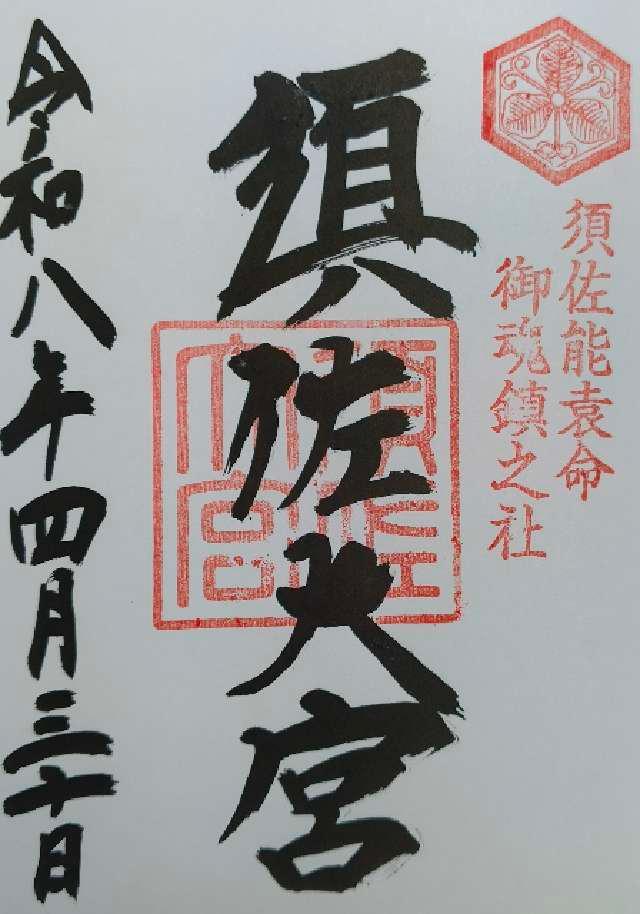 須佐能袁命
御魂鎮之社
須佐大宮
須佐大宮
令和八年四月三十日